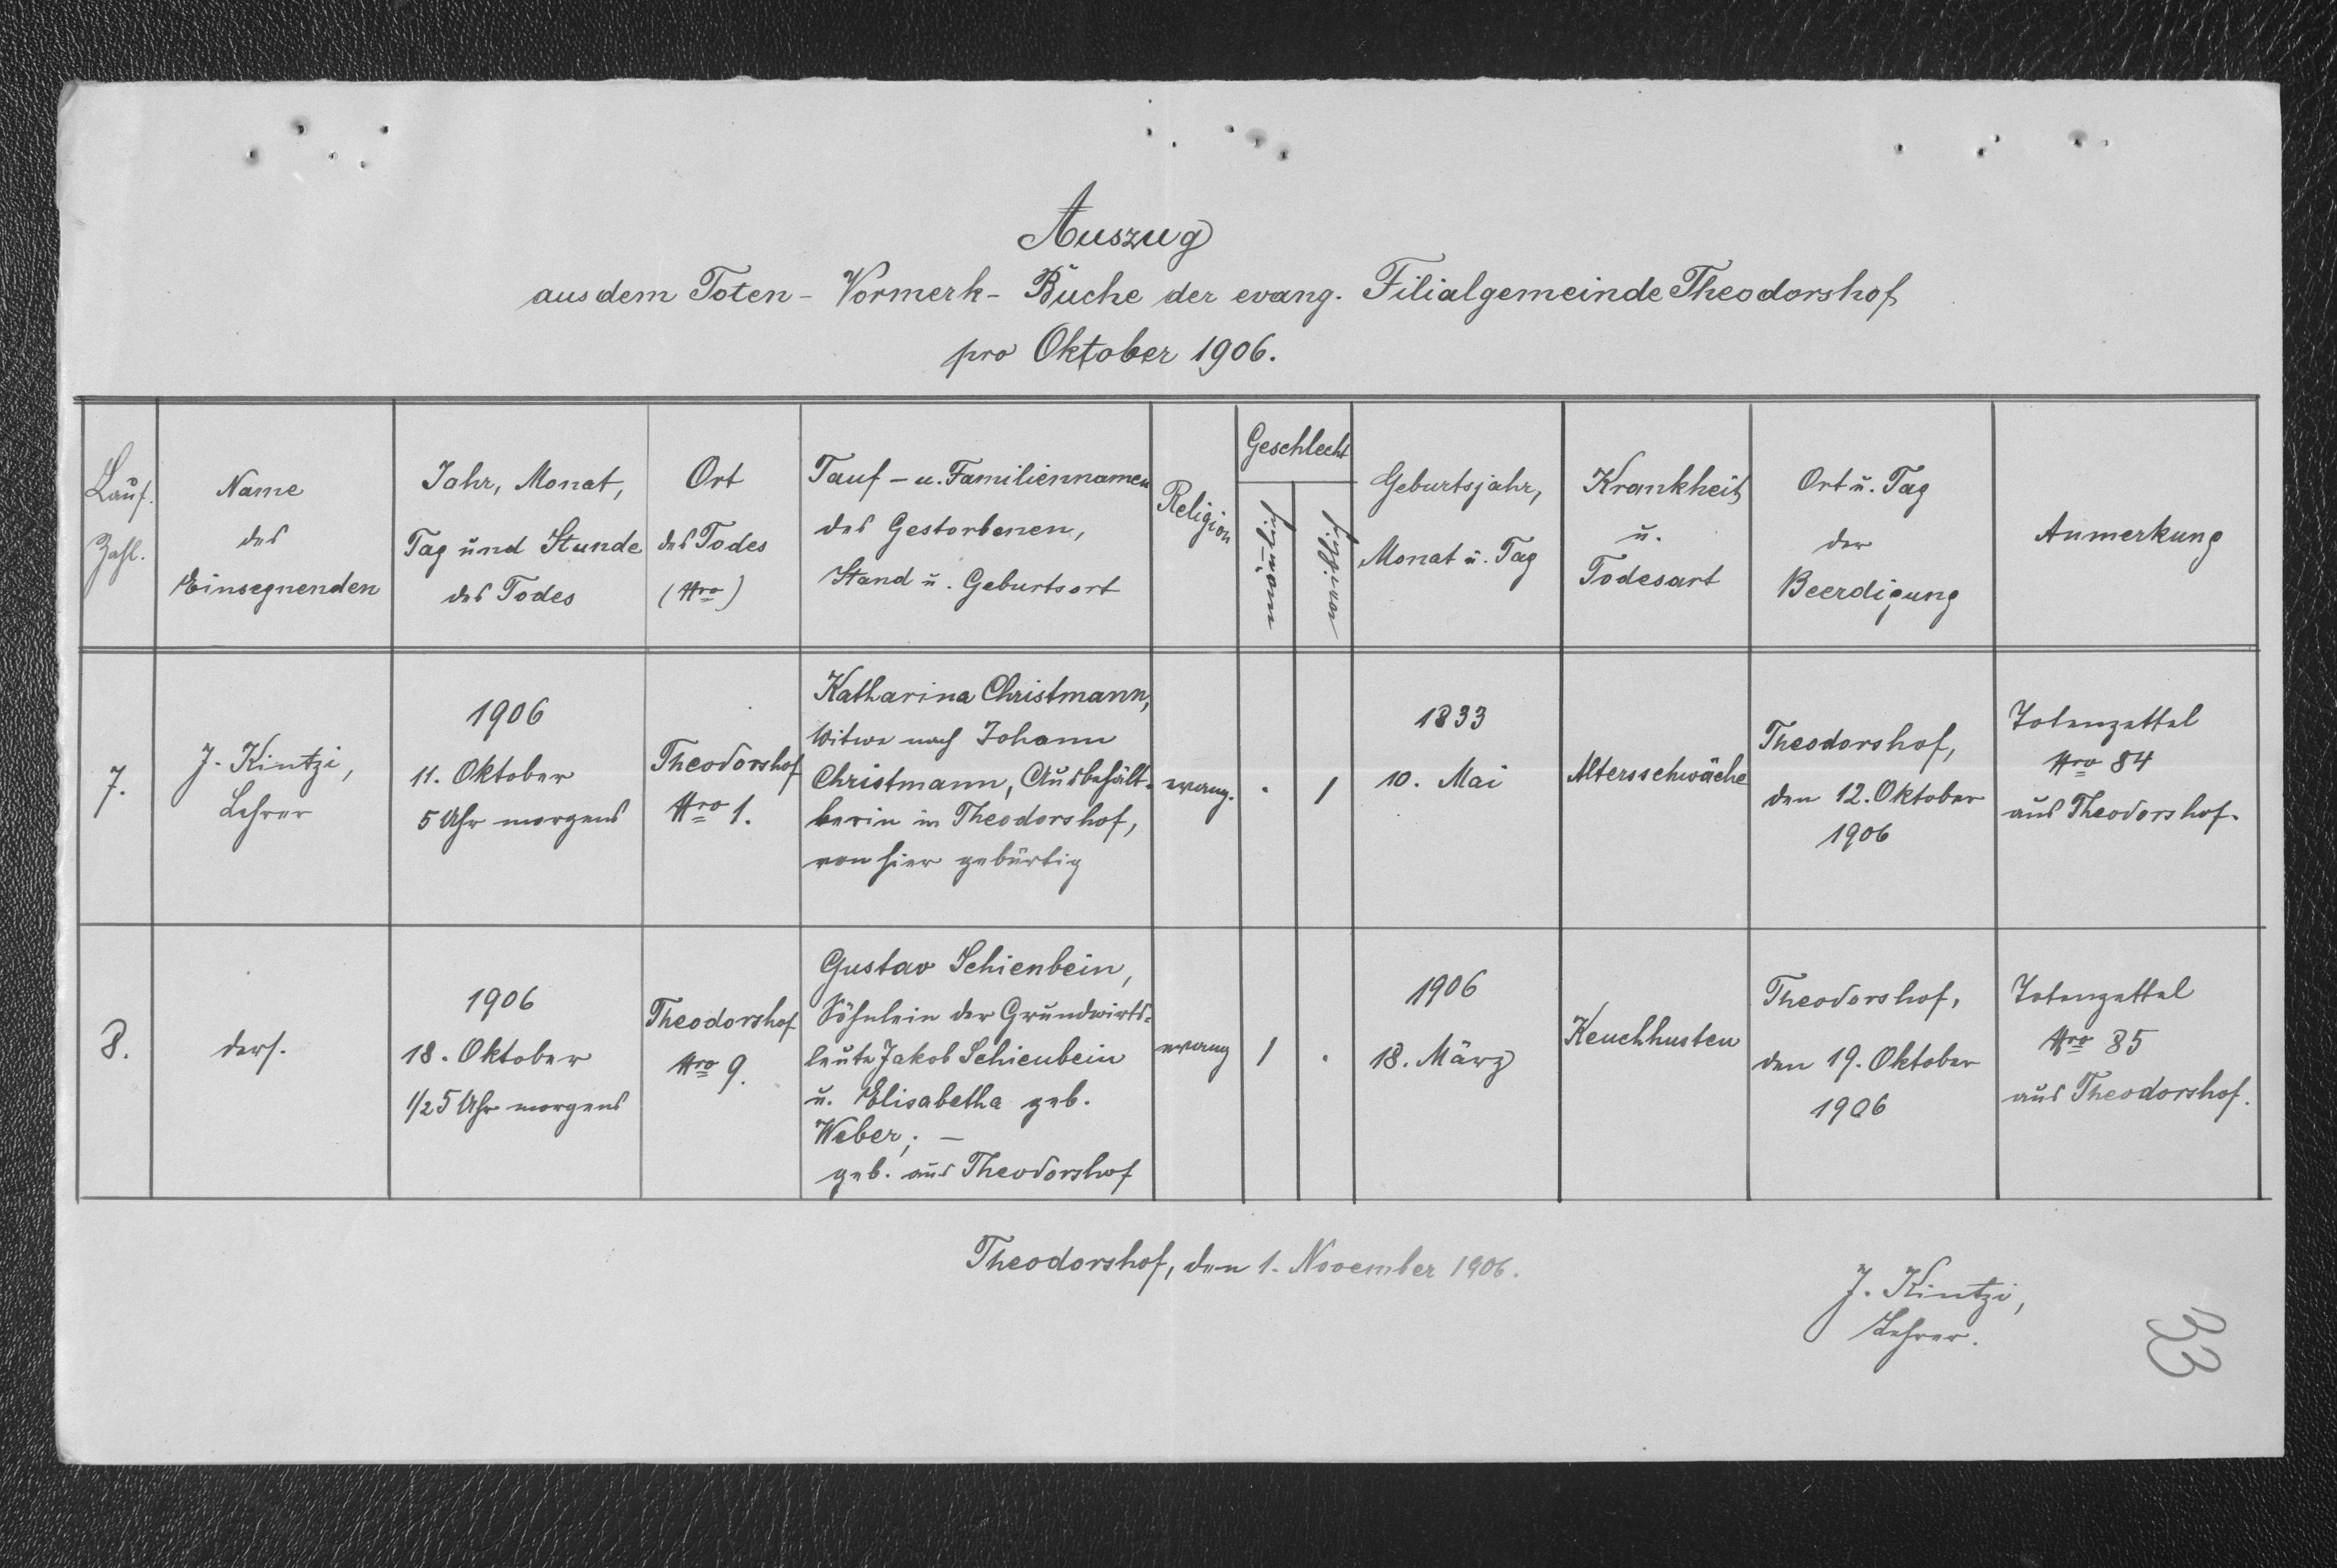 Auszug
aus dem Toten-Vormerk-Buche der evang. Filialgemeinde Theodorshof
pro Oktober 1906.
Lauf.
Zahl.
Name
des
Einsegnenden
Jahr, Monat,
Tag und Stunde
des Todes
Ort
des Todes
(Nro)
Tauf- u. Familiennamen
des Gestorbenen,
Stand u. Geburtsort
Religion
Geschlecht
männlich
weiblich
Geburtsjahr,
Monat u. Tag
Krankheit
u.
Todesart
Ort u. Tag
der
Beerdigung
Anmerkung
7.
J. Kintzi,
Lehrer
1906
11. Oktober
5 Uhr morgens
Theodorshof
Nro 1.
Katharina Christmann,
Witwe nach Johann
Christmann, Ausbehält-
berin in Theodorshof,
von hier gebürtig
evang.
.
1
1833
10. Mai
Altersschwäche
Theodorshof,
den 12. Oktober
1906
Totenzettel
Nro 84
aus Theodorshof.
8.
ders.
1906
18. Oktober
1/2 5 Uhr morgens
Theodorshof
Nro 9.
Gustav Schienbein,
Söhnlein der Grundwirts-
leute Jakob Schienbein
u. Elisabetha geb.
Weber; –
geb. aus Theodorshof
evang
1
.
1906
18. März
Keuchhusten
Theodorshof,
den 19. Oktober
1906
Totenzettel
Nro 85
aus Theodorshof.
Theodorshof, den 1. November 1906.
J. Kintzi,
Lehrer.
33